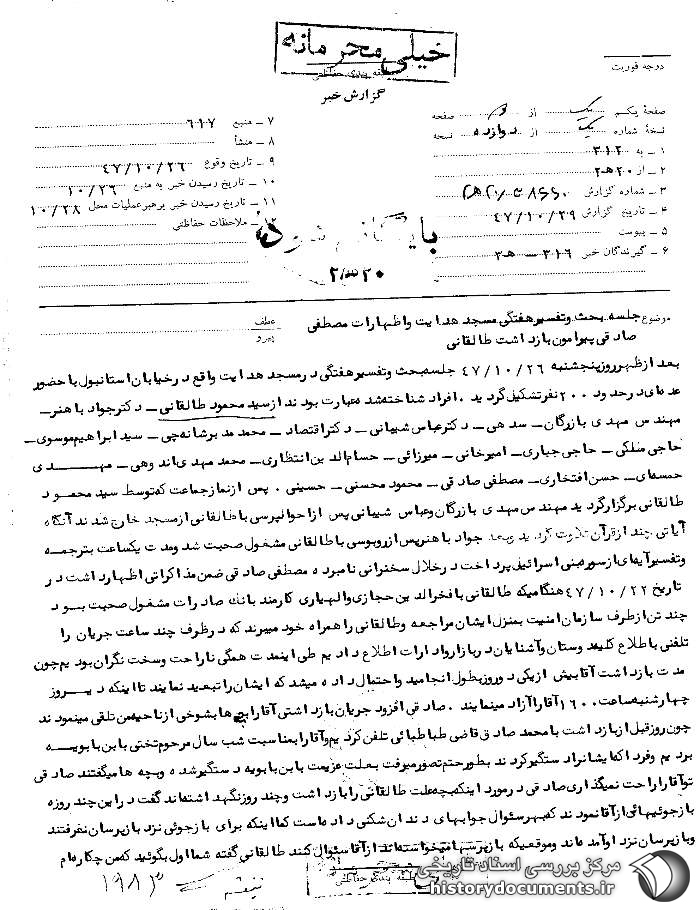 خیلی محرمانه
طبقه بندی حفاظتی
درجه فوریت
گزارش خبر
صفحهٔ یکم از صفحه
نسخهٔ شماره یک از دوازده نسخه
۱ ـ به ۳۱۲
۲ ـ از ۲۰ هـ ۲
۳ ـ شماره گزارش
۴ ـ تاریخ گزارش ۴۷/۱۰/۲۹
۵ ـ پیوست
۶ ـ گیرندگان خبر ۳۱۶ ـ هـ ۳
۷ ـ منبع ۶۱۷
۸ ـ منشأ
۹ ـ تاریخ وقوع ۴۷/۱۰/۲۶
۱۰ ـ تاریخ رسیدن خبر به منبع ۱۰/۲۶
۱۱ ـ تاریخ رسیدن خبر برهبرعملیات محل ۱۰/۲۸
۱۲ ـ ملاحظات حفاظتی
بایگانی شود
موضوع جلسه بحث وتفسیرهفتگی مسجد هدایت واظهارات مصطفی
صادقی پیرامون بازداشت طالقانی
عطف
پیرو
بعد ازظهرروزپنجشنبه ۴۷/۱۰/۲۶ جلسه بحث وتفسیرهفتگی درمسجد هدایت واقع درخیابان استانبول با حضور
عده ای درحدود ۲۰۰ نفرتشکیل گردید . افراد شناخته شده عبارت بودند ازسید محمود طالقانی ـ دکترجواد با هنر ـ
مهندس مهدی بازرگان ـ سدهی ـ دکترعباس شیبانی ـ دکتراقتصاد ـ محمد مدیرشانه چی ـ سید ابراهیم موسوی ـ
حاجی ملکی ـ حاجی جباری ـ امیرخانی ـ میرزائی ـ حسام الدین انتظاری ـ محمد مهدی اندوهی ـ مهدی
خمسه ای ـ حسن افتخاری ـ مصطفی صادقی ـ محمود محسنی ـ حسینی . پس ازنماز جماعت که توسط سید محمود
طالقانی برگزارگردید مهندس مهدی بازرگان وعباس شیبانی پس ازاحوالپرسی با طالقانی ازمسجد خارج شدند آنگاه
آیاتی چند ازقرآن تلاوت گردید وبعد جواد با هنرپس ازروبوسی با طالقانی مشغول صحبت شد ومدت یکساعت بترجمه
وتفسیرآیه ای ازسوره بنی اسرائیل پرداخت درخلال سخنرانی نامبرده مصطفی صادقی ضمن مذاکراتی اظهارداشت در
تاریخ ۴۷/۱۰/۲۲ هنگامیکه طالقانی با فخرالدین حجازی والهیاری کارمند بانک صادرات مشغول صحبت بود
چند تن ازطرف سازمان امنیت بمنزل ایشان مراجعه وطالقانی را همراه خود میبرند که درظرف چند ساعت جریان را
تلفنی با طلاع کلیه دوستان وآشنایان دربازارواد ارات اطلاع دادیم طی اینمدت همگی ناراحت وسخت نگران بودیم چون
مدت بازداشت آقا بیش ازیکی دوروزبطول انجامید واحتمال داده میشد که ایشان راتبعید نمایند تا اینکه دیروز
چهارشنبه ساعت ۱۶۰۰ آقا راآزاد مینمایند . صادقی افزود جریان بازداشتی آقا را بچه ها بشوخی ازناحیه من تلقی مینمودند
چون روزقبل ازبازداشت با محمد صادق قاضی طباطبائی تلفن کردیم وآقا را بمناسبت شب سال مرحوم تختی با بن بابویه
بردیم وفردا که ایشانراد ستگیرکردند بطورحتم تصورمیرفت بعلت عزیمت با بن بابویه دستگیرشده وبچه ها میگفتند صادقی
توآقا را راحت نمیگذاری صادقی درمورد اینکه بچه علت طالقانی را بازداشت وچند روزنگهداشته اند گفت دراین چند روزه
بازجوئیهائی ازآقا نمودند که بهرسئوال جوابهای دندان شکنی داده است کما اینکه برای بازجوئی نزد بازپرسان نفرفتند
وبازپرسان نزد اوآمده اند وموقعیکه بازپرسها میخواسته اند ازآقا سئوال کنند طالقانی گفته شما اول بگوئید که من چکاره ام
۱۹۸۳
مرکز بررسی اسناد تاریخی
historydocuments.ir